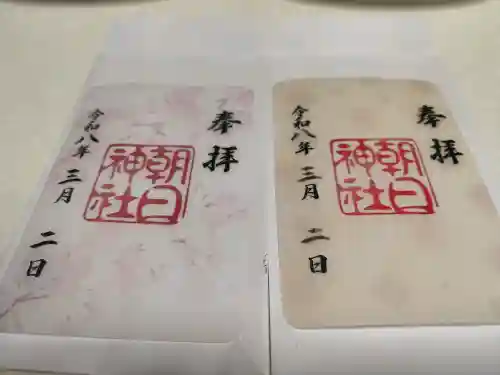 奉拝
朝日
神社
令和八年三月二日
奉拝
朝日
神社
令和八年三月二日